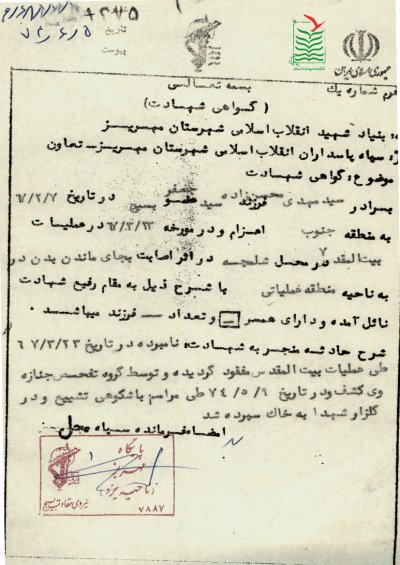 ۸۲۷۵
تاریخ ۷۴/۶/۵
پیوست
جمهوری اسلامی ایران
فرم شماره یک
بسمه تعالی
( گواهی شهادت )
به: بنیاد شهید انقلاب اسلامی شهرستان مهریز
از: سپاه پاسداران انقلاب اسلامی شهرستان مهریز ـ تعاون
موضوع: گواهی شهادت
برادر سید مهدی محسن زاده فرزند سید جعفر عضو بسیج در تاریخ ۶۷/۲/۷
به منطقه جنوب اعزام و در مورخه ۶۷/۳/۲۳ در عملیات
بیت المقدس ۷ در محل شلمچه در اثر اصابت بجای ماندن بدن در
به ناحیه منطقه عملیاتی با شرح ذیل به مقام رفیع شهادت
نائل آمده و دارای همسر ـ و تعداد ـ فرزند میباشد .
شرح حادثه منجر به شهادت: نامبرده در تاریخ ۶۷/۳/۲۳
طی عملیات بیت المقدس مفقود گردیده و توسط گروه تفحص جنازه
وی کشف و در تاریخ ۷۴/۵/۹ طی مراسم باشکوهی تشییع و در
گلزار شهدا به خاک سپرده شد
امضاء فرمانده سپاه محل
پایگاه
مهریز
(ناحیه یزد)
نیروی مقاومت بسیج ۷۸۸۷